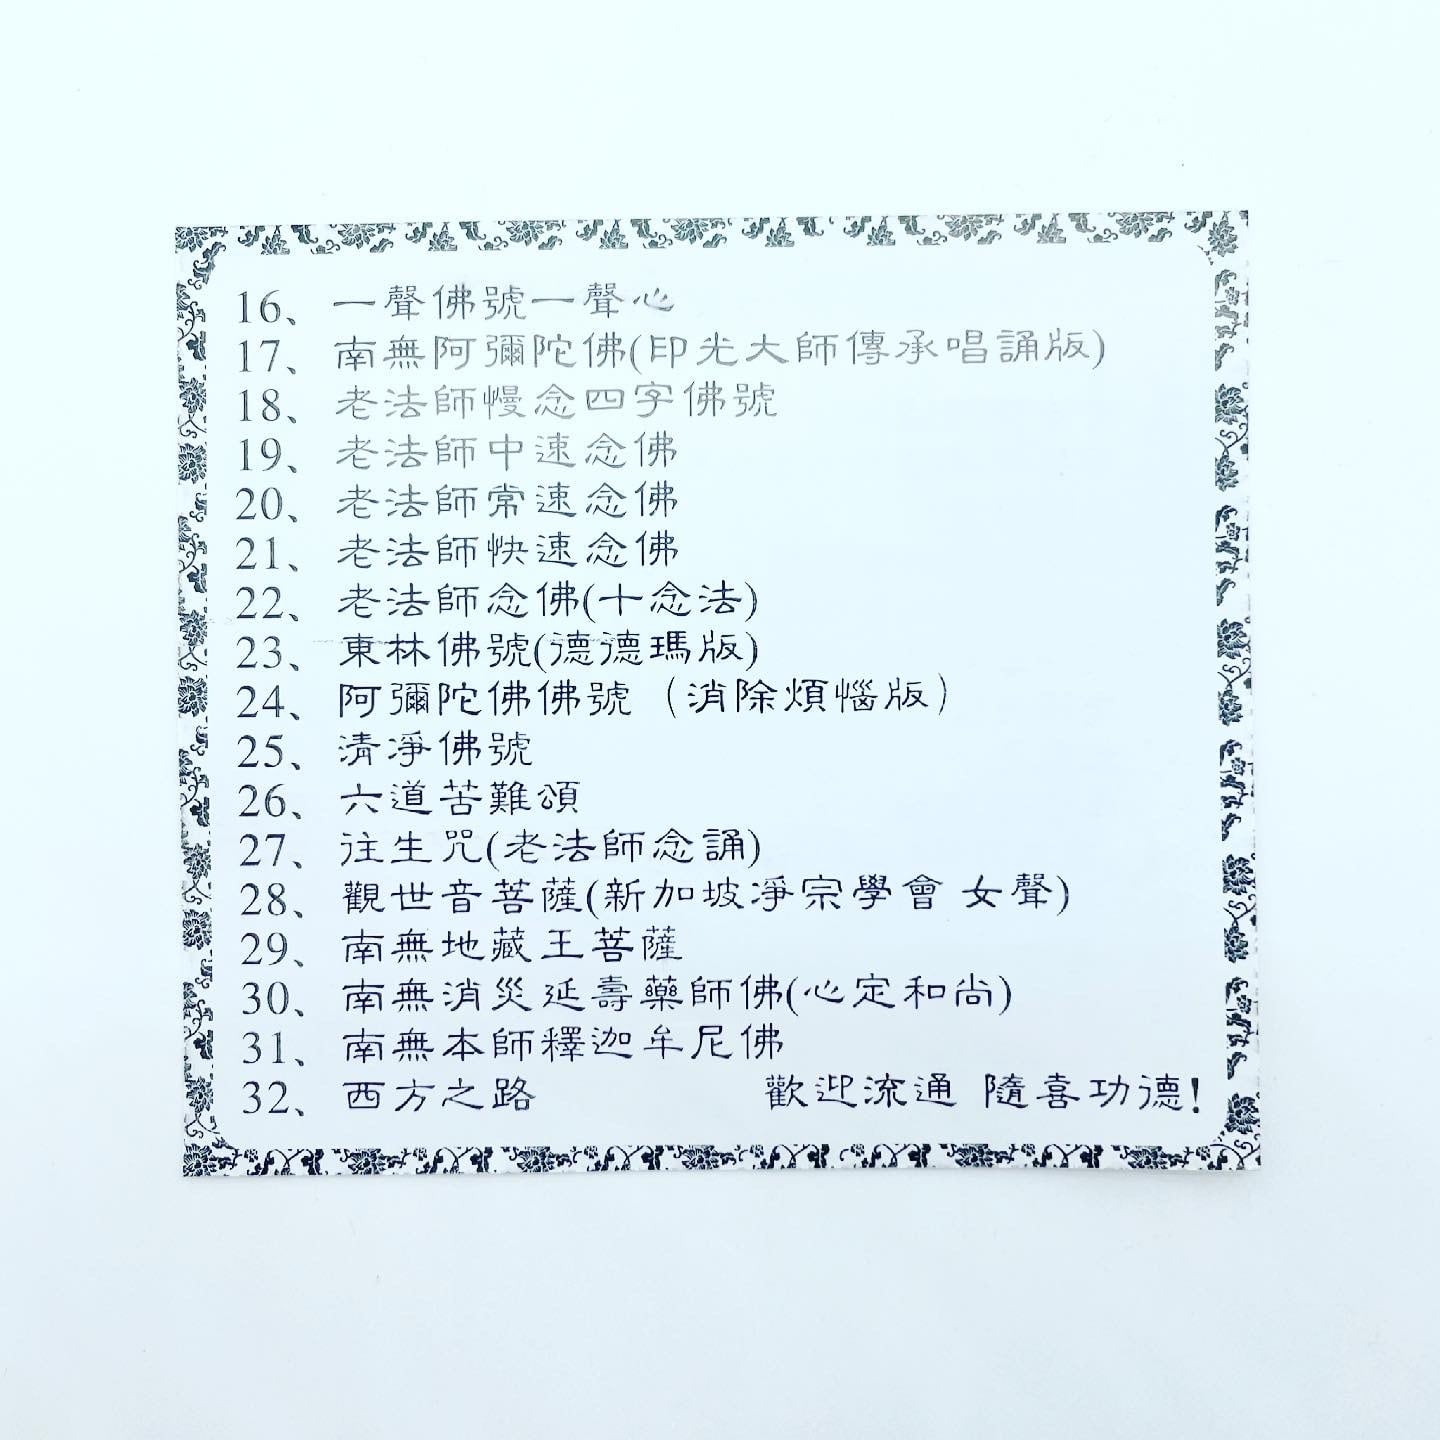 16、一聲佛號一聲心
17、南無阿彌陀佛(印光大師傳承唱誦版)
18、老法師慢念四字佛號
19、老法師中速念佛
20、老法師常速念佛
21、老法師快速念佛
22、老法師念佛(十念法)
23、東林佛號(德德瑪版)
24、阿彌陀佛佛號（消除煩惱版）
25、清淨佛號
26、六道苦難頌
27、往生咒(老法師念誦)
28、觀世音菩薩(新加坡淨宗學會 女聲)
29、南無地藏王菩薩
30、南無消災延壽藥師佛(心定和尚)
31、南無本師釋迦牟尼佛
32、西方之路 歡迎流通 隨喜功德!